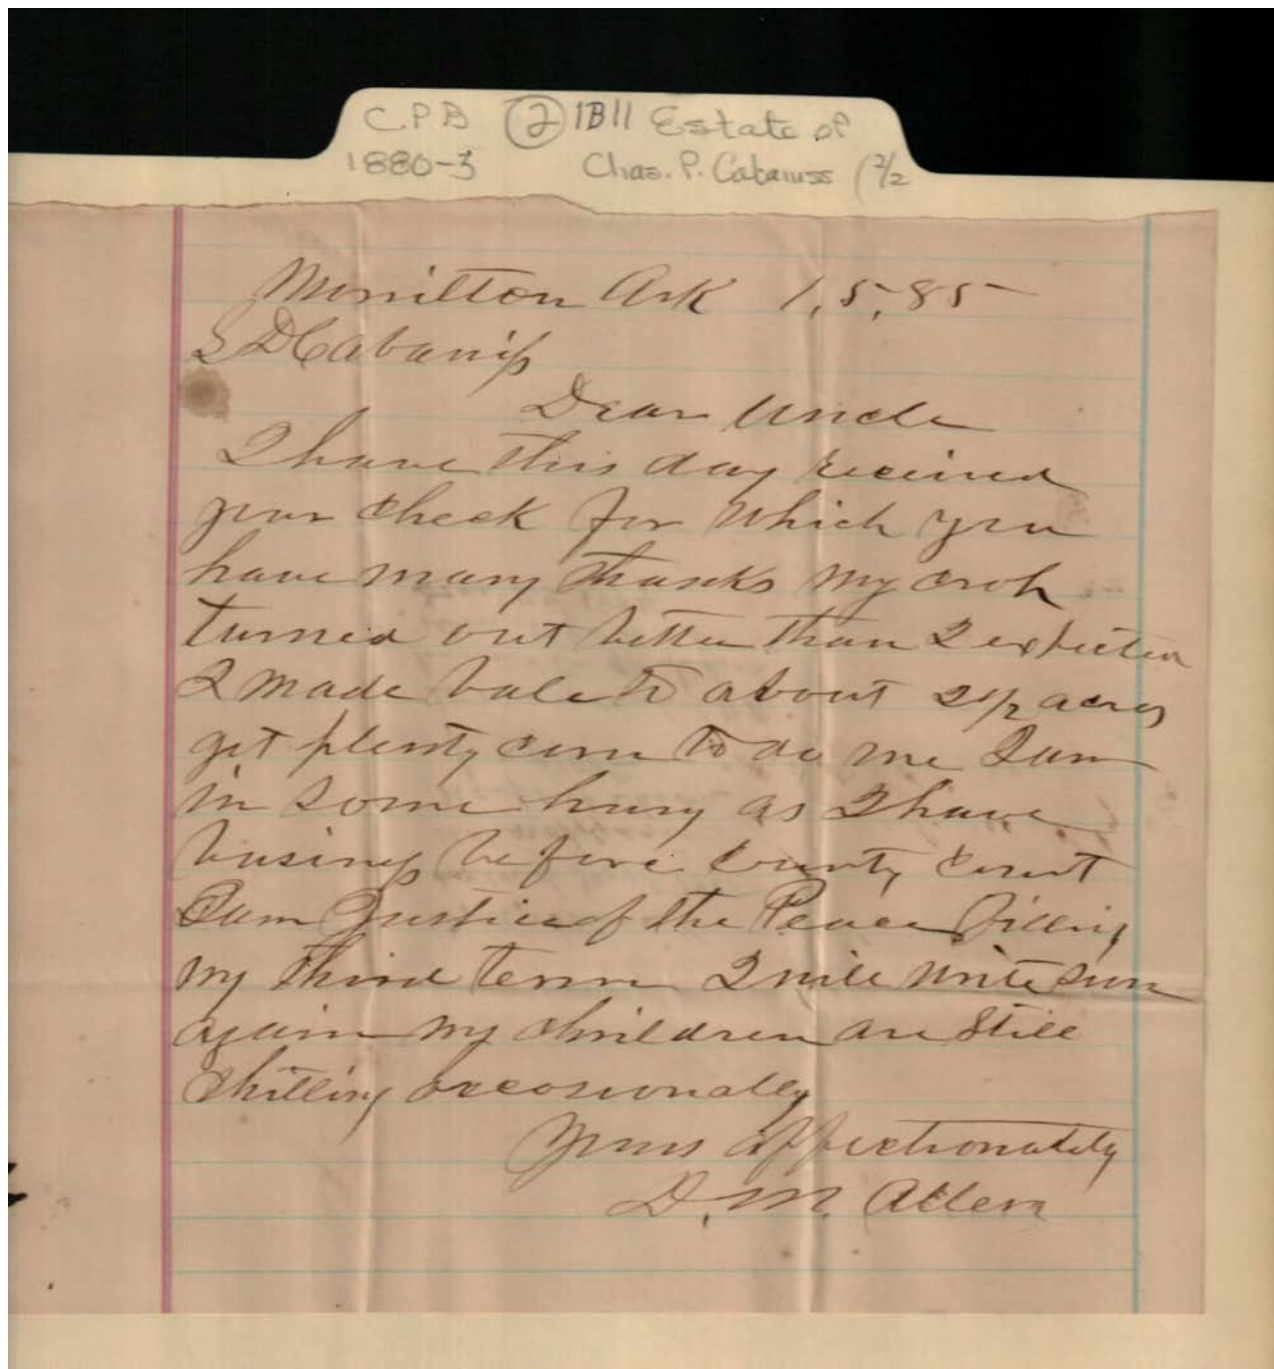 C.P.B ② 1B11 Estate of
1880-3 Chas. P. Cabaniss (2/2
Morrilton Ark 1,5,85
S D Cabaniss
Dear Uncle
I have this day received
your check for which you
have many thanks my crop
turned out better than I expected
I made bale to about 2 1/2 acres
get plenty corn to do me I am
in some hurry as I have
business before County Court
I am Justice of the Peace filling
my third term I will write soon
again my children are still
chilling occasionally
Yours affectionately
D. M. Allen